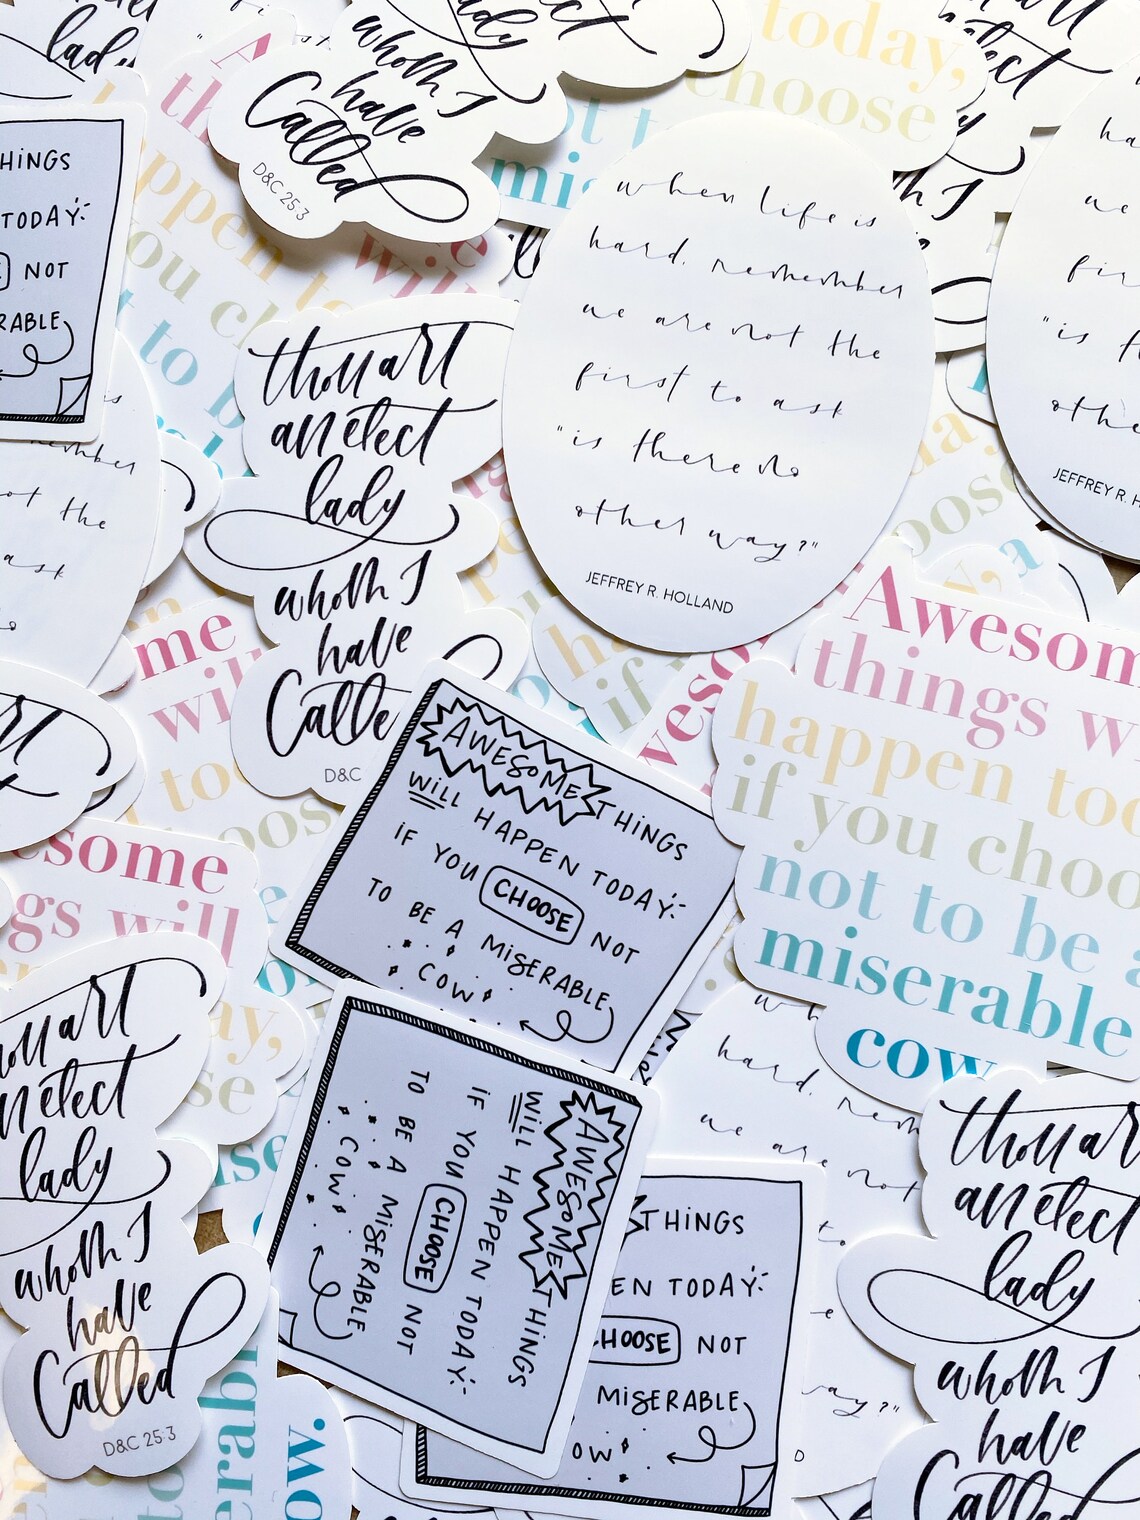 lady
whom I
have
Called
D&C 25:3
today,
choose
THINGS
TODAY
NOT
when life is
hard, remember
we are not the
first to ask
"is there no
other way?"
JEFFREY R. HOLLAND
"is
JEFFREY R. H
thou art
an elect
lady
whom I
have
Calle
D&C
me
Awesom
things w
happen too
if you choo
not to be a
miserable
cow
AWESOME THINGS
WILL HAPPEN TODAY
IF YOU CHOOSE NOT
TO BE A MISERABLE
COW
esome
gs will
ay,
se
an elect
lady
whom I
have
Called
D&C 25:3
AWESOME THINGS
WILL HAPPEN TODAY
IF YOU CHOOSE NOT
TO BE A MISERABLE
COW
THINGS
EN TODAY
HOOSE NOT
MISERABLE
OW
hard, rem
we are not
way?"
thou ar
an elect
lady
whom I
have
Called
erabl
ow.